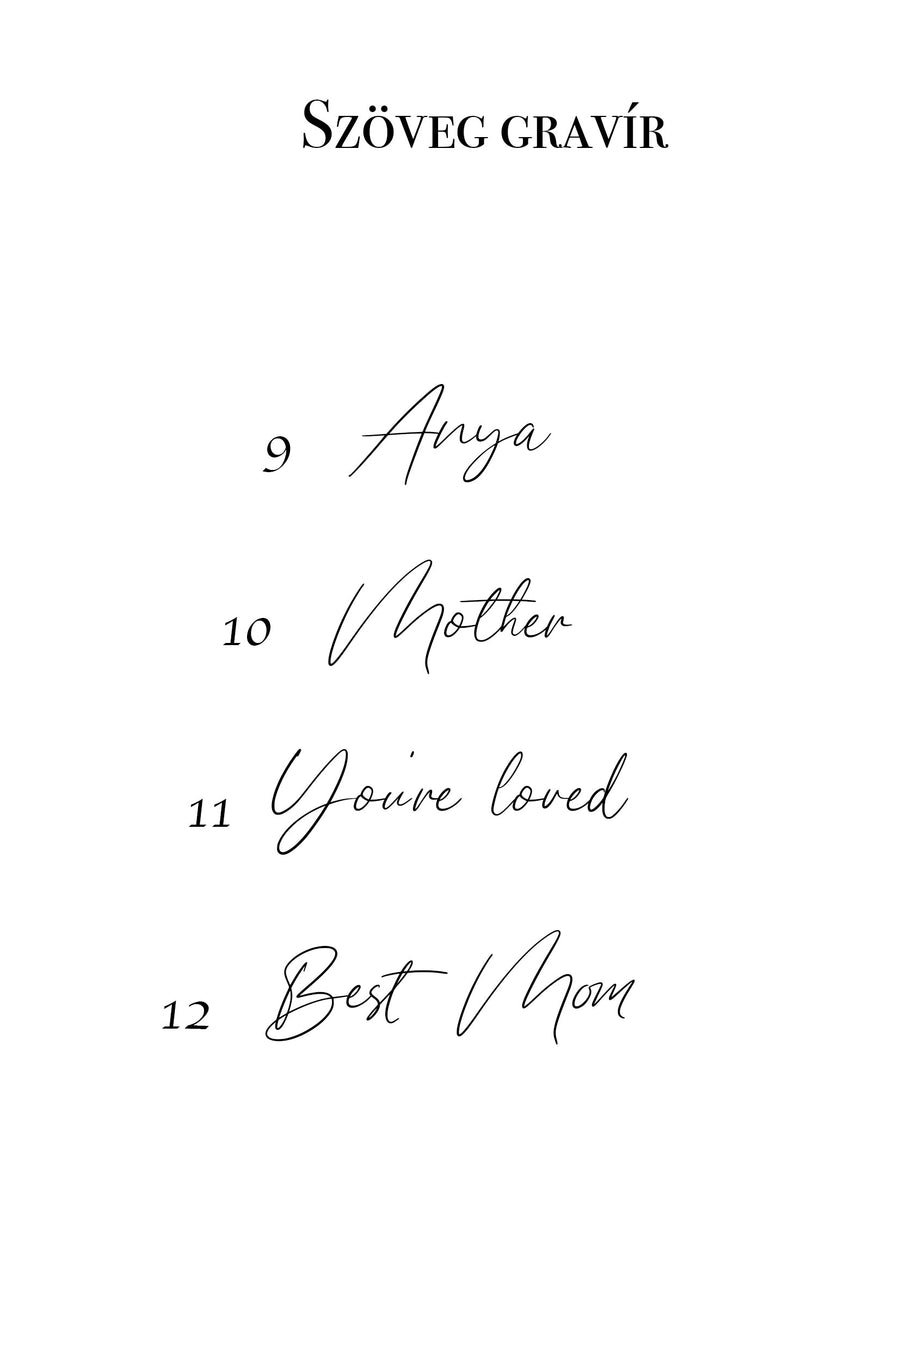 Szöveg gravír
9 Anya
10 Mother
11 You're loved
12 Best Mom